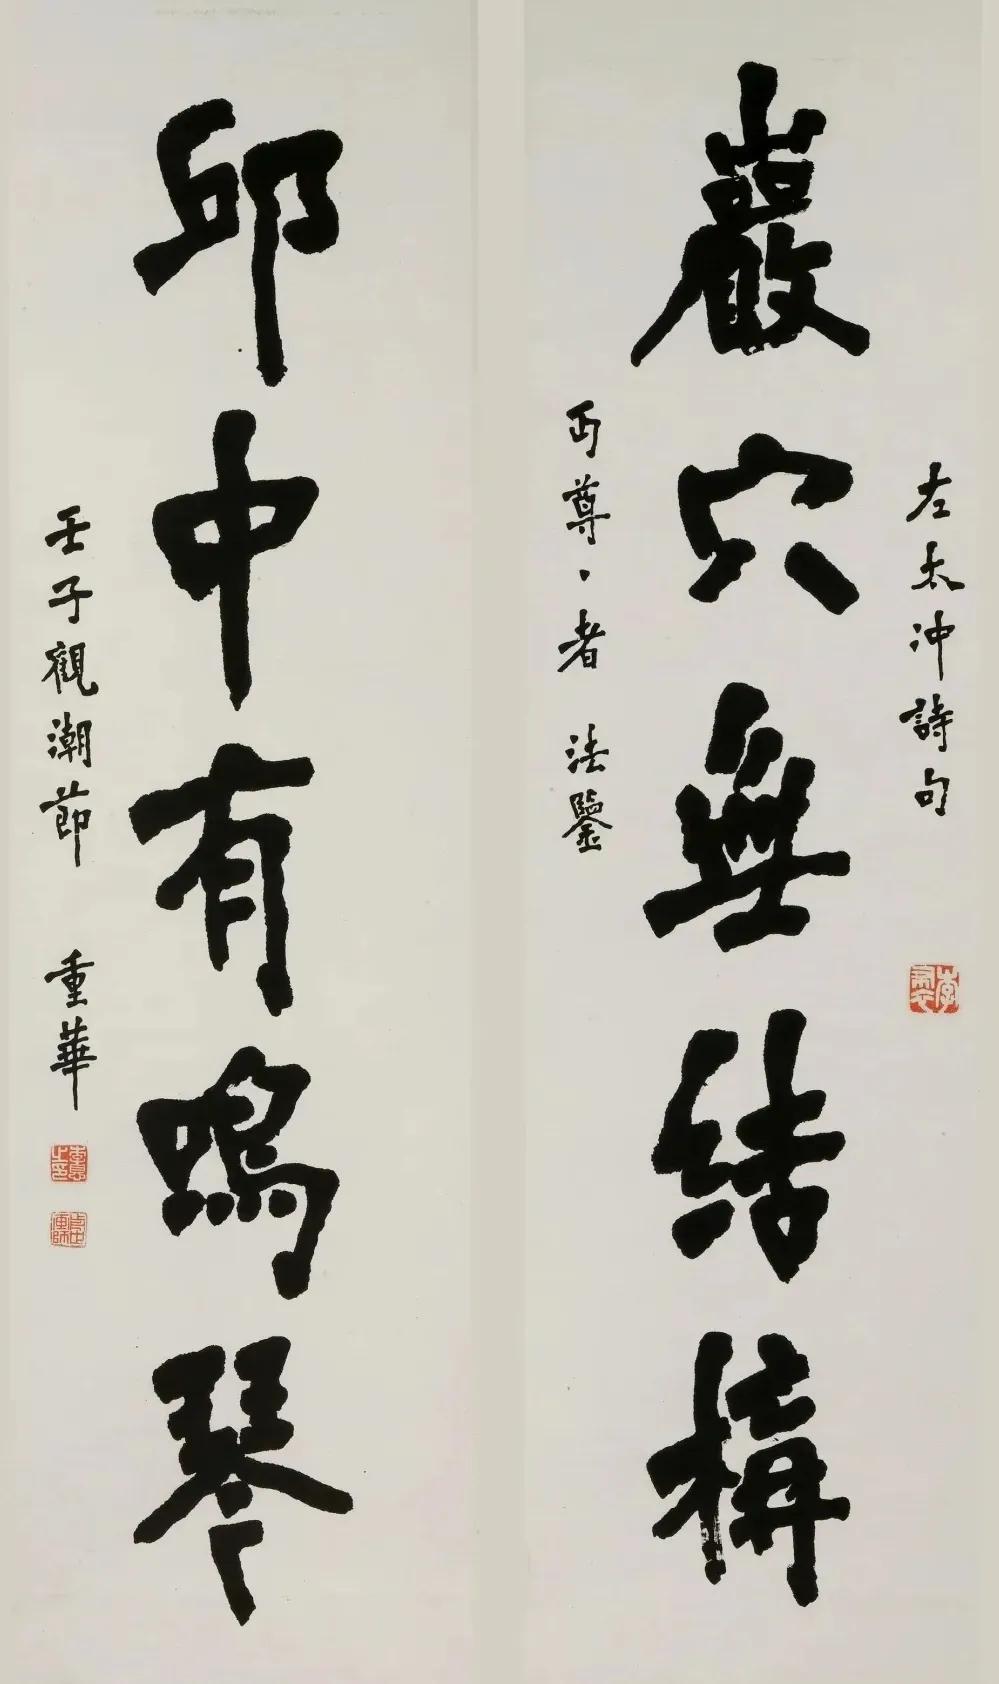 左太冲詩句
巖穴無結構
丏尊、者 法鑒
邱中有鳴琴
壬子觀潮節 重華